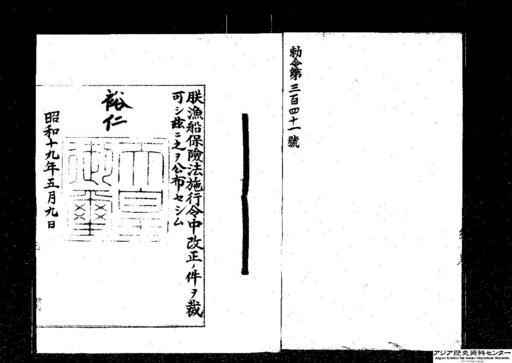 勅令第三百四十一號
朕漁船保險法施行令中改正ノ件ヲ裁
可シ玆ニ之ヲ公布セシム
裕仁
昭和十九年五月九日
アジア歴史資料センター
Japan Center for Asian Historical Records